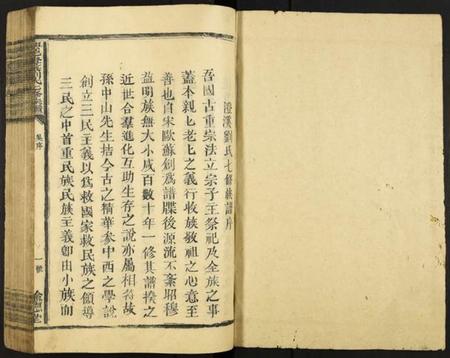 澄溪劉氏七修族譜序
吾國古重宗法立宗子主祭祀及全族之事
蓋本親匕老匕之義行收族敬祖之心意至
善也自宋歐蘇創為譜牒後源流不紊昭穆
益明族無大小咸百數十年一修其譜揆之
近世合羣進化互助生存之說亦屬相符故
孫中山先生括今古之精華參中西之學說
創立三民主義以為救國家救民族之領導
三民之中首重民族民族主義卽由小族而
序
一